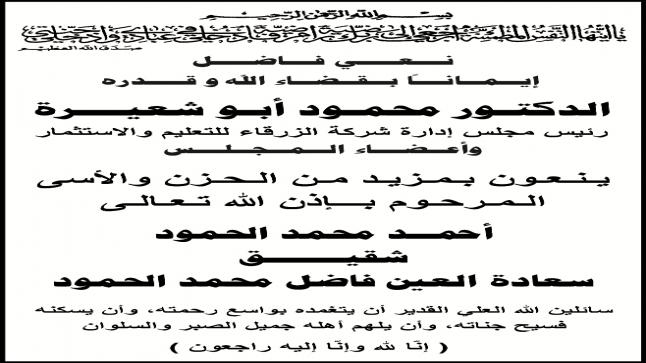 بسم الله الرحمن الرحيم
يا أيتها النفس المطمئنة ارجعي إلى ربك راضية مرضية فادخلي في عبادي وادخلي جنتي
صدق الله العظيم
نعي فاضل
إيماناً بقضاء الله وقدره
الدكتور محمود أبو شعيرة
رئيس مجلس إدارة شركة الزرقاء للتعليم والاستثمار
وأعضاء المجلس
ينعون بمزيد من الحزن والأسى
المرحوم بإذن الله تعالى
أحمد محمد الحمود
شقيق
سعادة العين فاضل محمد الحمود
سائلين الله العلي القدير أن يتغمده بواسع رحمته، وأن يسكنه
فسيح جناته، وأن يلهم أهله جميل الصبر والسلوان
( إنا لله وإنا إليه راجعون )